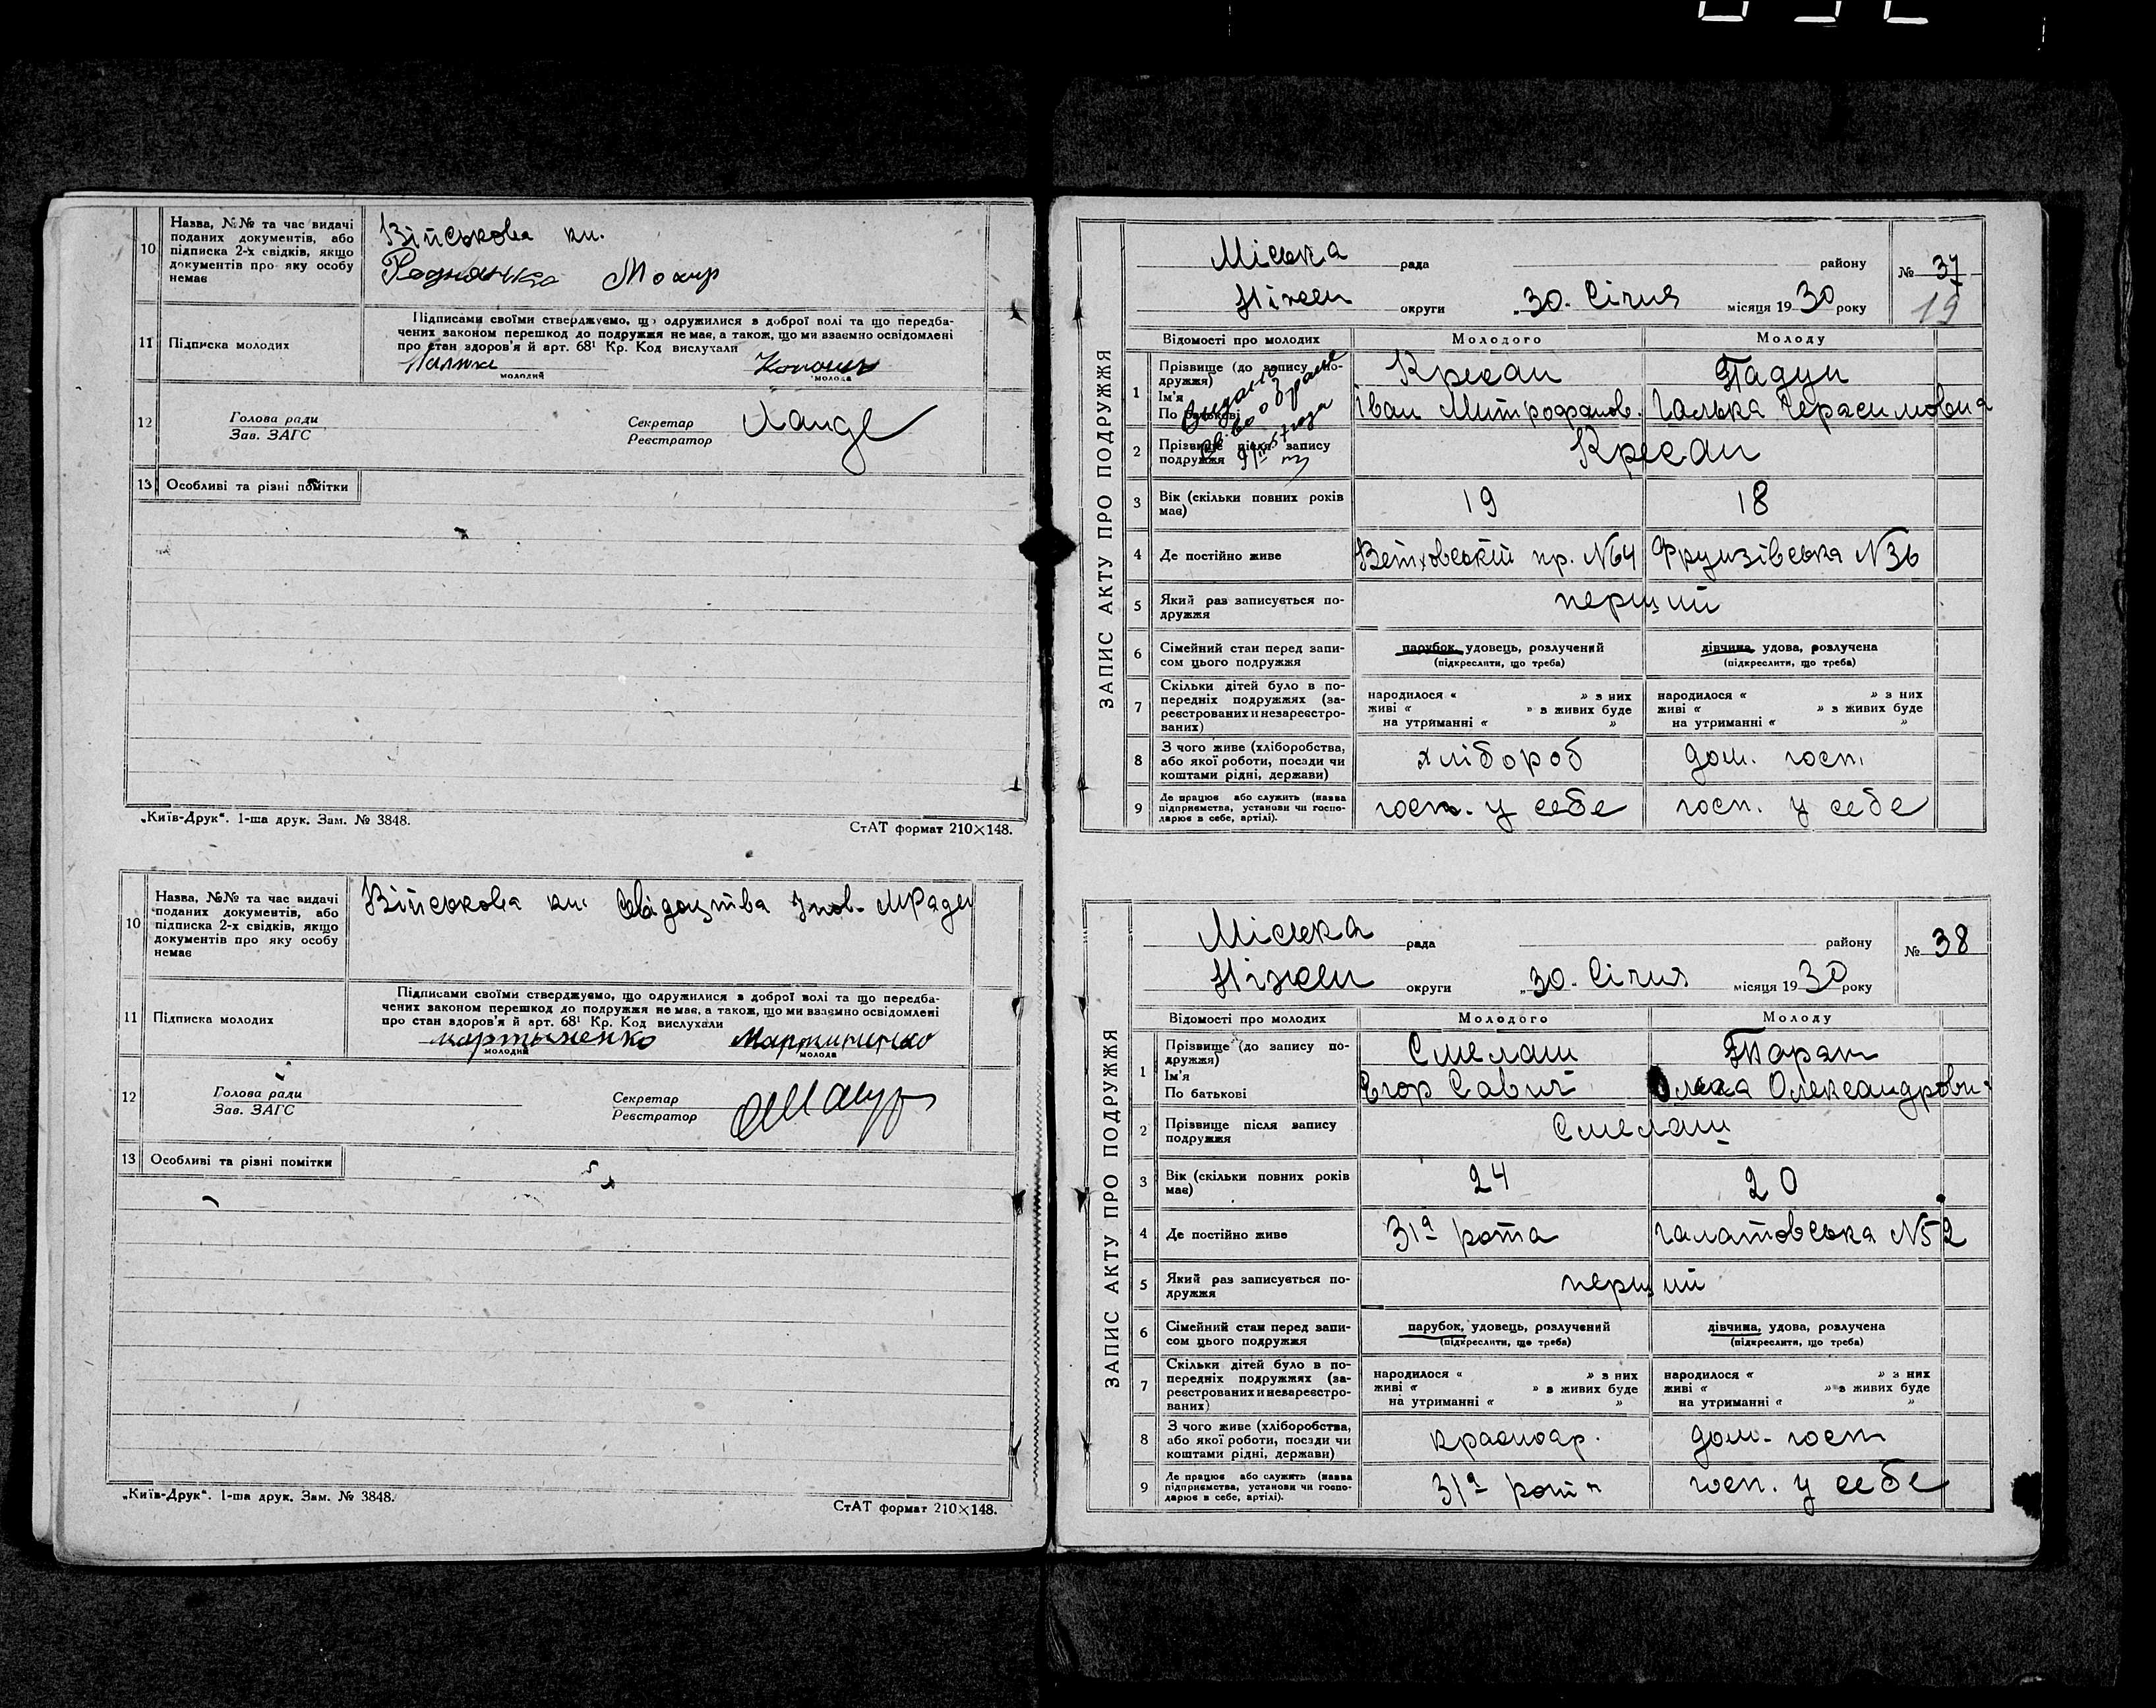 10
Назва, №№ та час видачі
поданих документів, або
підписка 2-х свідків, якщо
документів про яку особу
немає
Військова кн.
11
Підписка молодих
Підписами своїми стверджуємо, що одружилися з доброї волі та що передба-
чених законом перешкод до подружжя не має, а також, що ми взаємно освідомлені
про стан здоров'я й арт. 68¹ Кр. Код вислухали
молодий
молода
12
Голова ради
Зав. ЗАГС
Секретар
Реєстратор
13
Особливі та різні помітки
„Київ-Друк“. 1-ша друк. Зам. № 3848.
СтАТ формат 210×148.
10
Назва, №№ та час видачі
поданих документів, або
підписка 2-х свідків, якщо
документів про яку особу
немає
Військова кн. Свідоцтва
11
Підписка молодих
Підписами своїми стверджуємо, що одружилися з доброї волі та що передба-
чених законом перешкод до подружжя не має, а також, що ми взаємно освідомлені
про стан здоров'я й арт. 68¹ Кр. Код вислухали
мартыненко Мартиненко
молодий
молода
12
Голова ради
Зав. ЗАГС
Секретар
Реєстратор
13
Особливі та різні помітки
„Київ-Друк“. 1-ша друк. Зам. № 3848.
СтАТ формат 210×148.
ЗАПИС АКТУ ПРО ПОДРУЖЖЯ
Міська рада району № 37
19
Ніжен округи „30. Січня місяця 1930 року
Відомості про молодих Молодого Молоду
1
Прізвище (до запису по-
дружжя)
Ім'я
По батькові
Кресан Падун
Іван Митрофанов. Галька Герасимовна
2
Прізвище після запису
подружжя
Кресан
3
Вік (скільки повних років
має)
19 18
4
Де постійно живе
Ветховський пр. №64 Фрунзівська №36
5
Який раз записується по-
дружжя
перший
6
Сімейний стан перед запи-
сом цього подружжя
парубок, удовець, розлучений
(підкреслити, що треба)
дівчина, удова, розлучена
(підкреслити, що треба)
7
Скільки дітей було в по-
передніх подружжях (за-
реєстрованих и незареєстро-
ваних)
народилося « » з них
живі « » з живих буде
на утриманні « »
народилося « » з них
живі « » з живих буде
на утриманні « »
8
З чого живе (хліборобства,
або якої роботи, посади чи
коштами рідні, держави)
хлібороб дом. госп.
9
Де працює або служить (назва
підприємства, установи чи госпо-
дарює в себе, артілі).
госп. у себе госп. у себе
ЗАПИС АКТУ ПРО ПОДРУЖЖЯ
Міська рада району № 38
Ніжен округи „30. Січня місяця 1930 року
Відомості про молодих Молодого Молоду
1
Прізвище (до запису по-
дружжя)
Ім'я
По батькові
Смелаш Таран
Єгор Савич Олександровн
2
Прізвище після запису
подружжя
Смелаш
3
Вік (скільки повних років
має)
24 20
4
Де постійно живе
31а рота Галатовська №52
5
Який раз записується по-
дружжя
перший
6
Сімейний стан перед запи-
сом цього подружжя
парубок, удовець, розлучений
(підкреслити, що треба)
дівчина, удова, розлучена
(підкреслити, що треба)
7
Скільки дітей було в по-
передніх подружжях (за-
реєстрованих и незареєстро-
ваних)
народилося « » з них
живі « » з живих буде
на утриманні « »
народилося « » з них
живі « » з живих буде
на утриманні « »
8
З чого живе (хліборобства,
або якої роботи, посади чи
коштами рідні, держави)
красноар. дом. госп
9
Де працює або служить (назва
підприємства, установи чи госпо-
дарює в себе, артілі).
31а рота госп. у себе